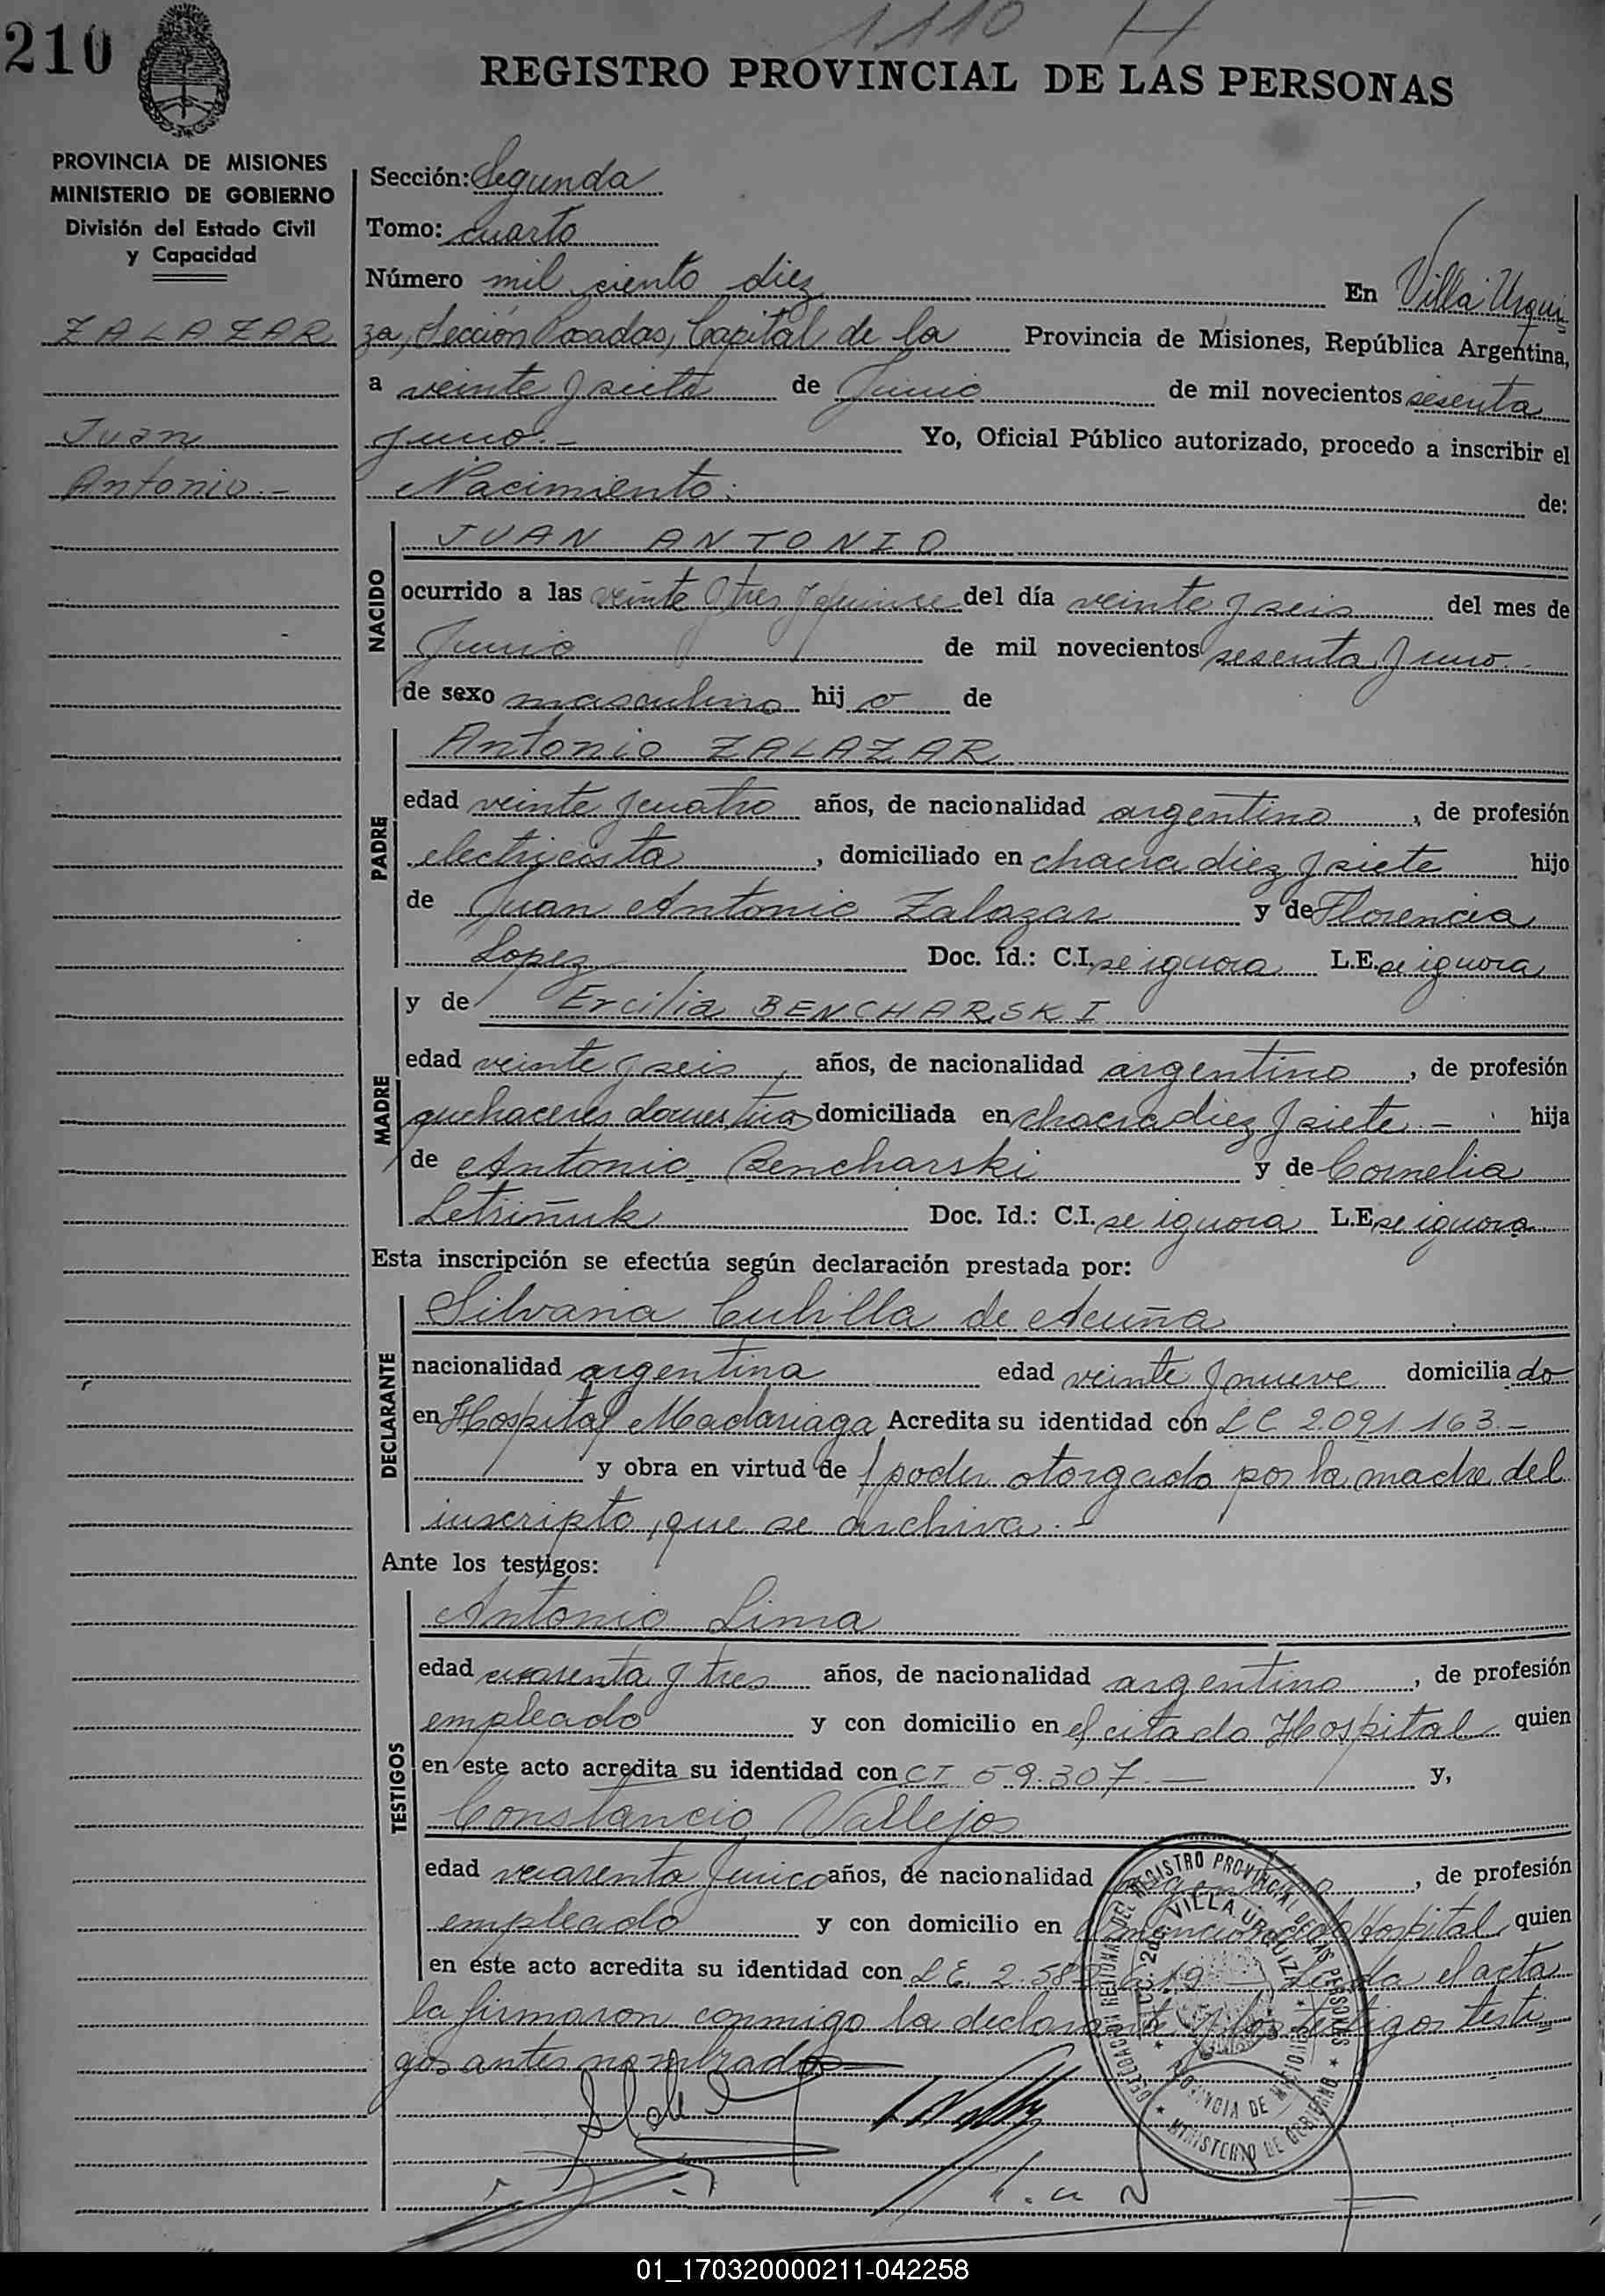 1.110 H
210
REGISTRO PROVINCIAL DE LAS PERSONAS
PROVINCIA DE MISIONES
MINISTERIO DE GOBIERNO
División del Estado Civil
y Capacidad
ZALAZAR
Juan
Antonio.-
Sección: Segunda
Tomo: cuarto
Número mil ciento diez En Villa Urqui=
za, Sección Posadas, Capital de la Provincia de Misiones, República Argentina,
a veinte y siete de Junio de mil novecientos sesenta
y uno.- Yo, Oficial Público autorizado, procedo a inscribir el
Nacimiento: de:
NACIDO
JUAN ANTONIO
ocurrido a las veinte y tres y quince del día veinte y seis del mes de
Junio de mil novecientos sesenta y uno.
de sexo masculino hij o de
PADRE
Antonio ZALAZAR
edad veinte y cuatro años, de nacionalidad argentino, de profesión
electricista, domiciliado en chacra diez y siete hijo
de Juan Antonio Zalazar y de Florencia
Lopez Doc. Id.: C.I. se ignora L.E. se ignora
MADRE
y de Ercilia BENCHARSKI
edad veinte y seis, años, de nacionalidad argentino, de profesión
quehaceres domesticos domiciliada en chacra diez y siete.- hija
de Antonio Bencharski y de Cornelia
Letriñuk Doc. Id.: C.I. se ignora L.E. se ignora
Esta inscripción se efectúa según declaración prestada por:
DECLARANTE
Silvana Cubilla de Acuña
nacionalidad argentina edad veinte y nueve domicilia do
en Hospital Madariaga Acredita su identidad con LC 2.091.163.-
y obra en virtud de poder otorgado por la madre del
inscripto, que se archiva.-
Ante los testigos:
TESTIGOS
Antonio Lima
edad cuarenta y tres años, de nacionalidad argentino, de profesión
empleado y con domicilio en el citado Hospital quien
en este acto acredita su identidad con CI 59.307.- y,
Constancio Vallejos
edad cuarenta y cinco años, de nacionalidad argentino, de profesión
empleado y con domicilio en el mencionado Hospital quien
en este acto acredita su identidad con LE. 2.58 Leida el acta
la firmaron conmigo la declarante y los testigos testi=
gos antes nombrados
DELEGACION REGIONAL DEL REGISTRO PROVINCIAL DE LAS PERSONAS
★ MINISTERIO DE GOBIERNO ★
SECC. 2da. VILLA URQUIZA
★ PROVINCIA DE MISIONES ★
01_170320000211-042258